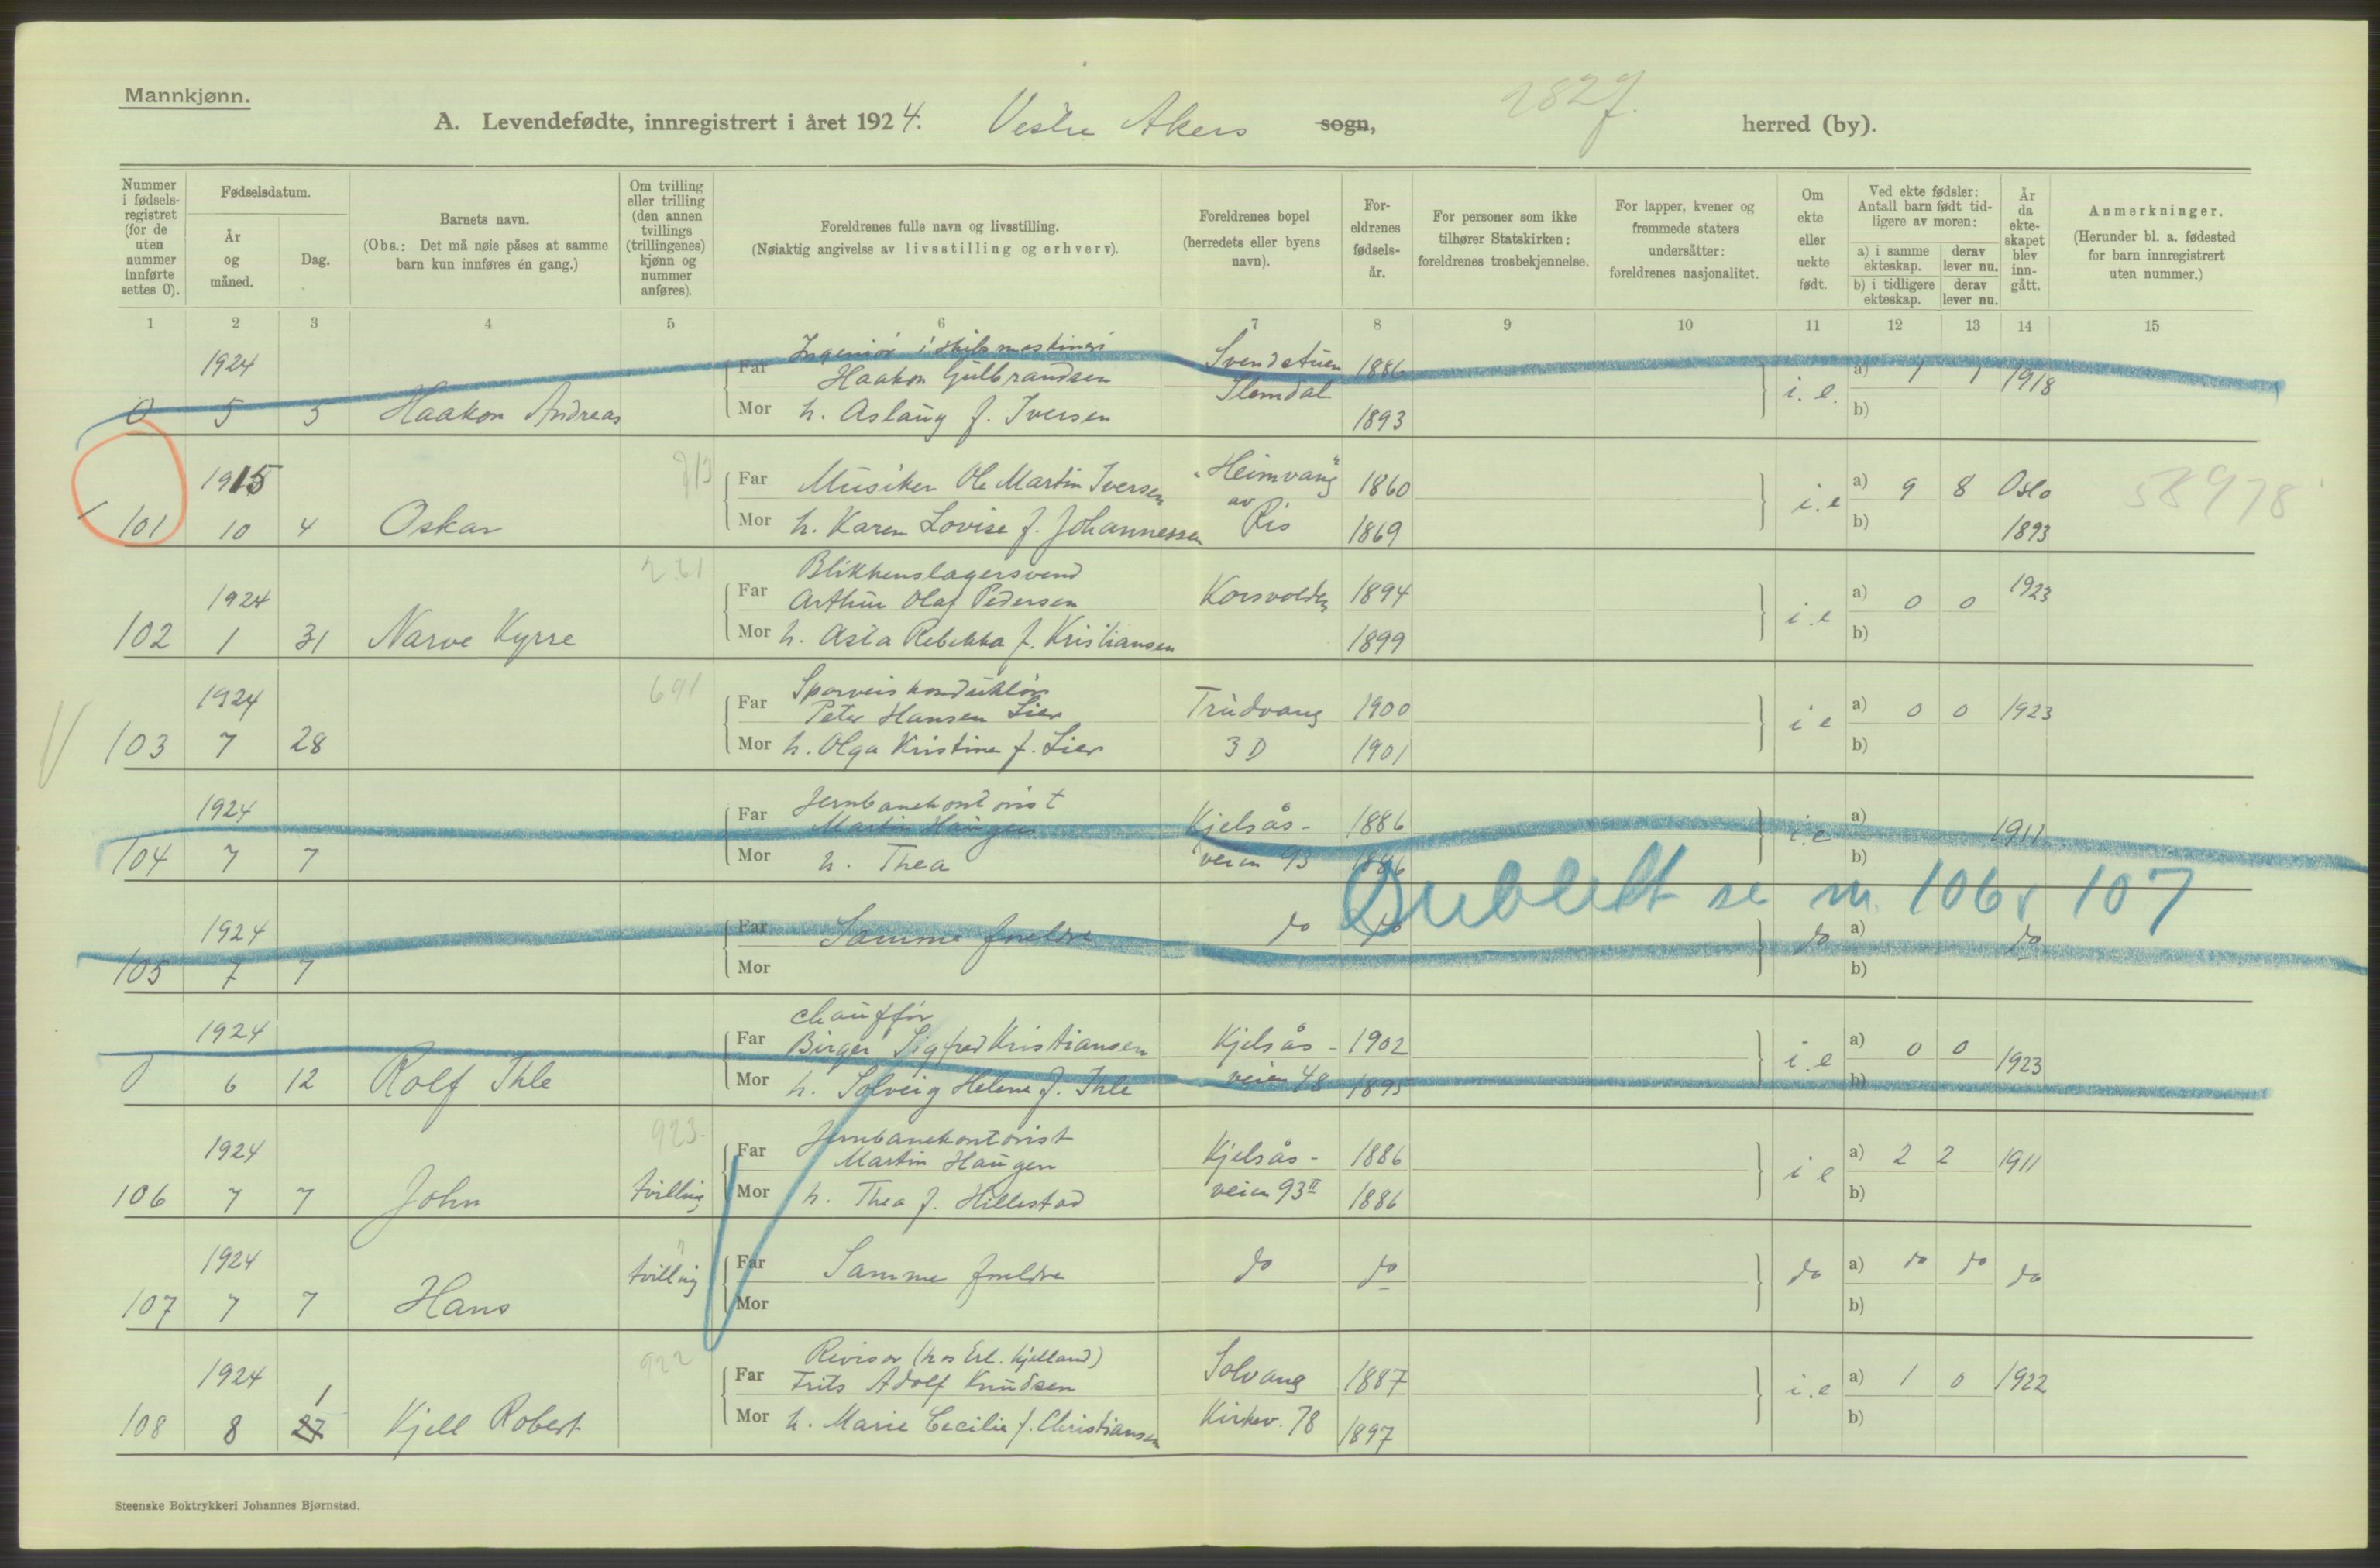 Mannkjønn.
2827.
A. Levendefødte, innregistrert i året 1924. Vestre Akers sogn, herred (by).
Nummer i fødsels-registret (for de uten nummer innførte settes 0).
Fødselsdatum.
År og måned.
Dag.
Barnets navn.
(Obs.: Det må nøie påses at samme barn kun innføres én gang.)
Om tvilling eller trilling (den annen tvillings (trillingenes) kjønn og nummer anføres).
Foreldrenes fulle navn og livsstilling.
(Nøiaktig angivelse av livsstilling og erhverv).
Foreldrenes bopel (herredets eller byens navn).
For-eldrenes fødsels-år.
For personer som ikke tilhører Statskirken: foreldrenes trosbekjennelse.
For lapper, kvener og fremmede staters undersåtter: foreldrenes nasjonalitet.
Om ekte eller uekte født.
Ved ekte fødsler: Antall barn født tid-ligere av moren:
a) i samme ekteskap.
derav lever nu.
b) i tidligere ekteskap.
derav lever nu.
År da ekte-skapet blev inn-gått.
Anmerkninger.
(Herunder bl. a. fødested for barn innregistrert uten nummer.)
1 2 3 4 5 6 7 8 9 10 11 12 13 14 15
Ingeniør i skibsmaskineri
1924 Far Haakon Gulbrandsen Svendstuen 1886 a) 1 1 1918
0 5 5 Haakon Andreas Mor h. Aslaug f. Iversen Slemdal 1893 i.e. b)
1915 713 Far Musiker Ole Martin Iversen "Heimvang" 1860 a) 9 8 Oslo 58978
101 10 4 Oskar Mor h. Karen Lovise f. Johannessen av Ris 1869 i.e b) 1893
261 Blikkenslagersvend
1924 Far Arthur Olaf Pedersen Korsvolden 1894 a) 0 0 1923
102 1 31 Narve Kyrre Mor h. Asta Rebekka f. Kristiansen 1899 i.e b)
691 Sporveiskonduktør
1924 Far Peter Hansen Lier Trudvang 1900 a) 0 0 1923
103 7 28 Mor h. Olga Kristine f. Lier 3 D 1901 i e b)
Jernbanekontorist
1924 Far Martin Haugen Kjelsås- 1886 i.e a) 1911
104 7 7 Mor h. Thea veien 93 1886 b)
Dubblett se nr. 106 & 107
1924 Far Samme foreldre do do do a) do
105 7 7 Mor b)
chauffør
1924 Far Birger Sigfred Kristiansen Kjelsås- 1902 i.e a) 0 0 1923
0 6 12 Rolf Ihle Mor h. Solveig Helene f. Ihle veien 48 1895 b)
923. Jernbanekontorist
1924 Far Martin Haugen Kjelsås- 1886 i e a) 2 2 1911
106 7 7 John tvilling Mor h. Thea f. Hillestad veien 93 II 1886 b)
1924 " tvilling Far Samme foreldre do do do a) do do do
107 7 7 Hans Mor b)
922 Revisor (hos Erl. Kjelland)
1924 1 Far Frits Adolf Knudsen Solvang 1887 i.e a) 1 0 1922
108 8 27 Kjell Robert Mor h. Marie Cecilie f. Christiansen Kirkev. 78 1897 b)
Steenske Boktrykkeri Johannes Bjørnstad.